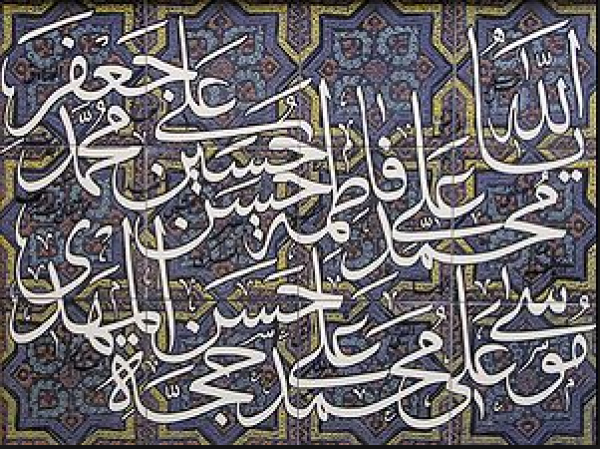 يا الله محمد علي فاطمة حسن حسين علي محمد جعفر
موسى علي محمد علي حسن حجة المهدي